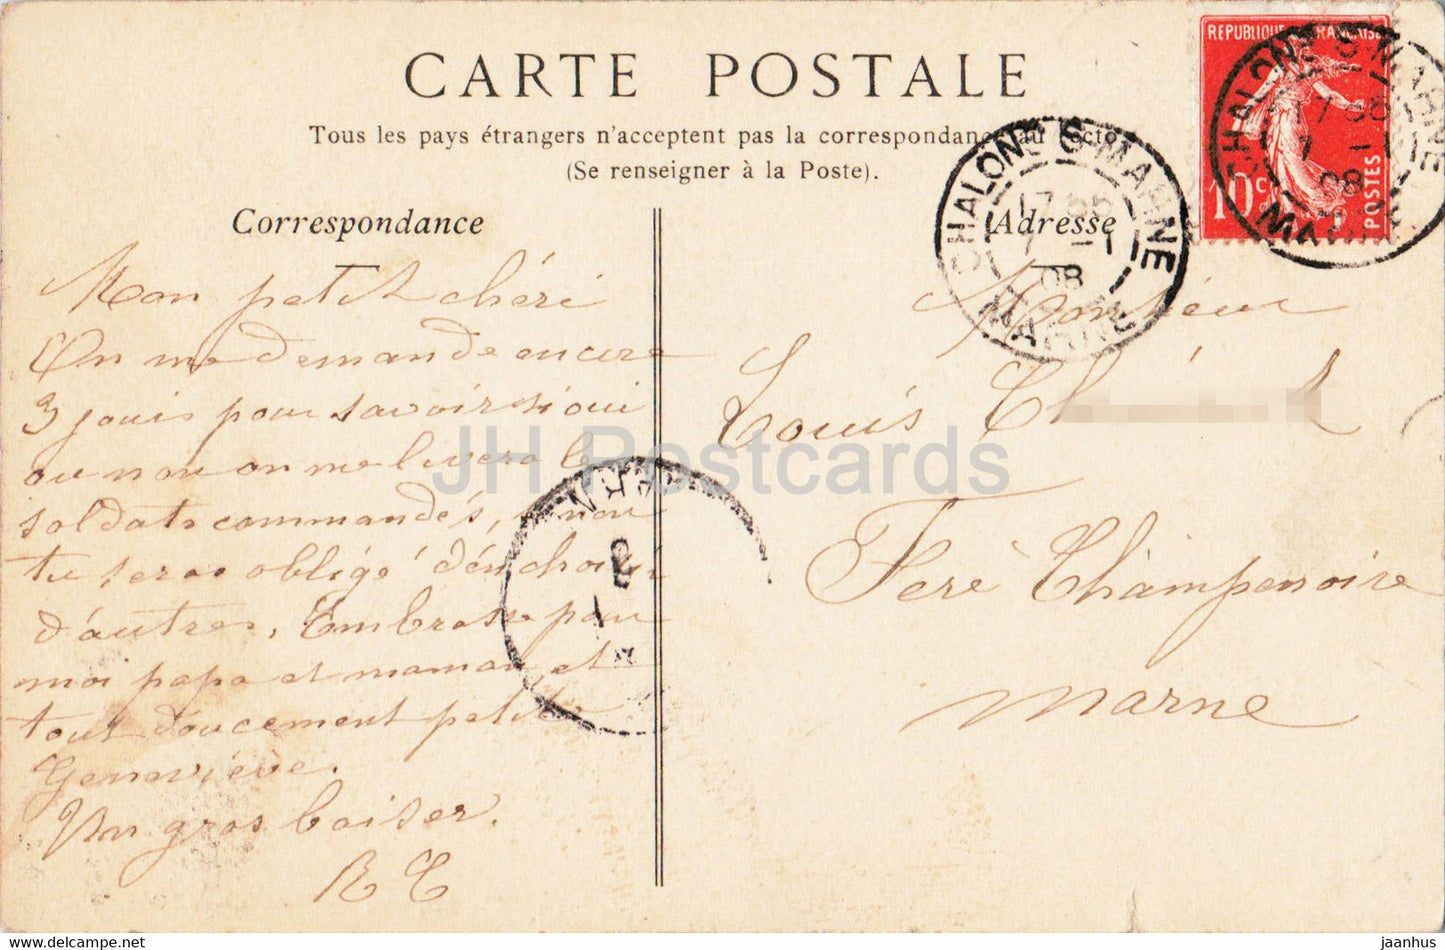 CARTE POSTALE
Tous les pays étrangers n'acceptent pas la correspondance au recto
(Se renseigner à la Poste).
REPUBLIQUE FRANÇAISE
10c
POSTES
CHALONS-S-MARNE
17 55
7 -1
08
MARNE
CHALONS-S-MARNE
17
7 -1
08
MARNE
Correspondance
Mon petit chéri
On me demande encore
3 jours pour savoir si oui
ou non on me livrera le
soldats commandés, si non
tu seras obligé d'en choisir
d'autres, Embrasse pour
moi papa et maman, et
tout doucement petite
Geneviève.
Un gros baiser.
R C
Adresse
Monsieur
Louis Ch
Fère Champenoise
Marne
JH Postcards
jaanhus - https://www.delcampe.net